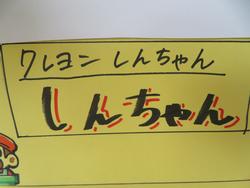 クレヨン しんちゃん
しんちゃん